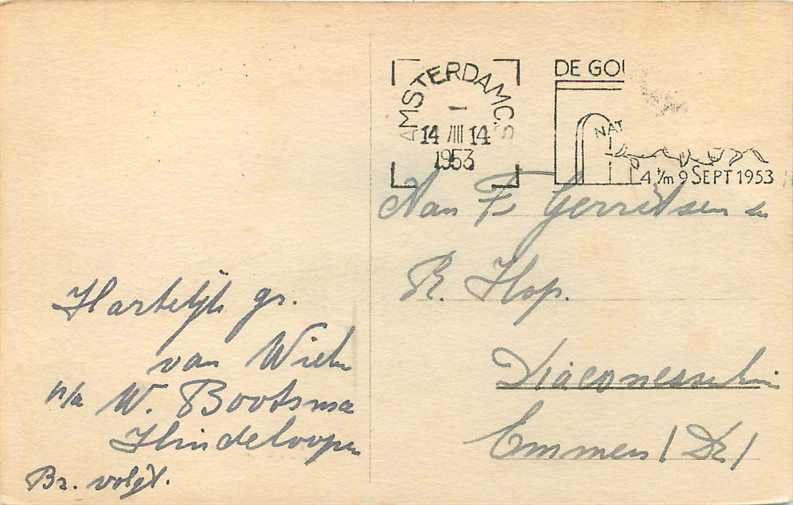 AMSTERDAM C.S.
14 VIII 14
1953
DE GOU
NAT
4 t/m 9 SEPT 1953
Aan Fr. Gerritsen en
R. Hop.
Diaconessenhuis
Emmen (Dr)
Hartelijk gr.
van Wieb
p/a W. Bootsma
Hindeloopen
Br. volgt.